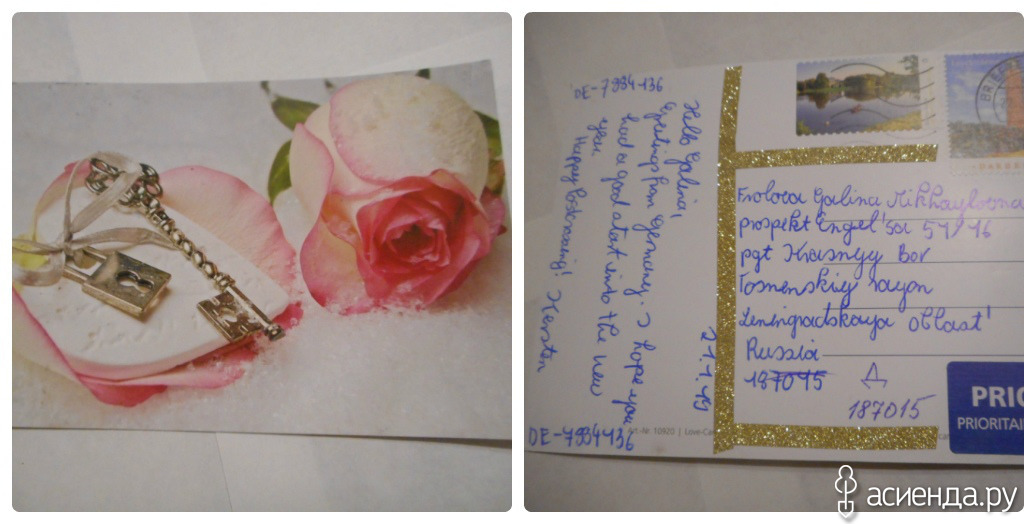 DE-7994136
Hello Galina,
Greetings from Germany. I hope you
had a good start into the new
year.
Happy Postcrossing! Kerstin
21.1.19
DE-7994136
Art.-Nr. 10920 | Love-Ca
BRIE
Frolova Galina Mikhaylovna
prospekt Engel'sa 57/16
pgt Krasnyy Bor
Tosnenskiy rayon
Leningradskaya Oblast'
Russia
187015
Д
187015
PRIO
PRIORITAI
асиенда.ру